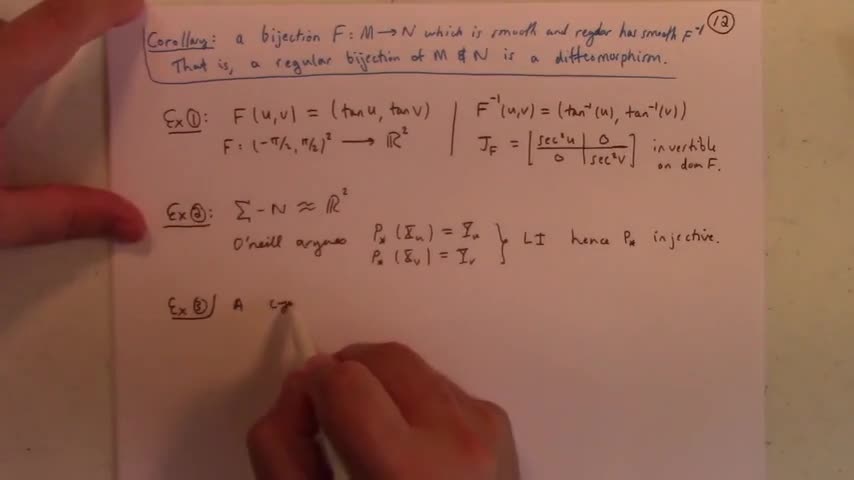 12
Corollary: a bijection F: M → N which is smooth and regular has smooth F⁻¹
That is, a regular bijection of M & N is a diffeomorphism.
Ex ①: F(u,v) = (tan u, tan v) | F⁻¹(u,v) = (tan⁻¹(u), tan⁻¹(v))
F: (-π/2, π/2)² → ℝ² | J_F = [sec²u | 0 / 0 | sec²v] invertible on dom F.
Ex ②: Σ - N ≈ ℝ²
O'neill argues P_*(X_u) = Y_u
P_*(X_v) = Y_v } LI hence P_* injective.
Ex ③ A cy